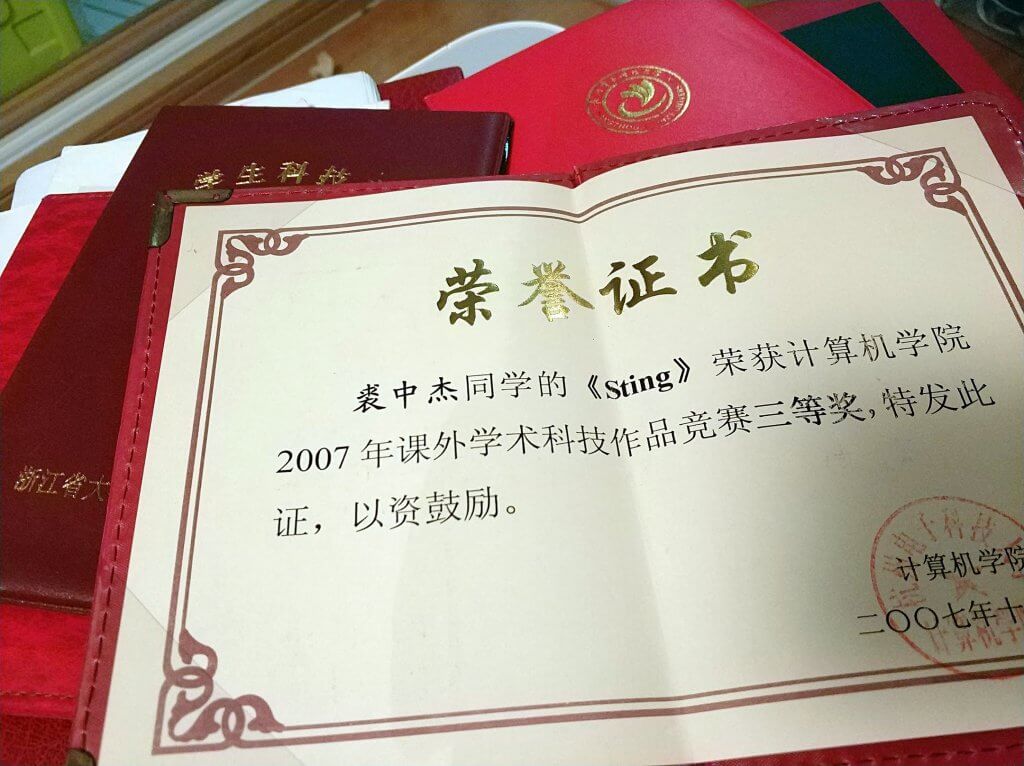 学生科技
浙江省大
荣誉证书
裘中杰同学的《Sting》荣获计算机学院
2007年课外学术科技作品竞赛三等奖,特发此
证，以资鼓励。
计算机学院
二〇〇七年十
电子科技
计算机学